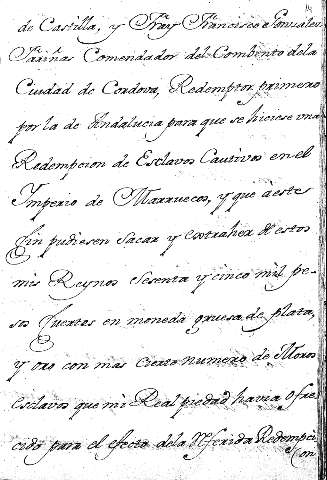 de Castilla, y Fray Francisco Gonzalez
Fariñas Comendador del Combento dela
Ciudad de Cordova, Redemptor primero
por la de Andalucia para que se hiciese una
Redempcion de Esclavos Cautivos en el
Imperio de Marruecos, y que àeste
fin pudiesen Sacar y extraher de estos
mis Reynos Sesenta y cinco mil pe-
sos fuertes en moneda gruesa de plata,
y oro con mas cierto numero de Moros
esclavos que mi Real piedad havia ofre
cido para el efecto dela Referida Redempci
on